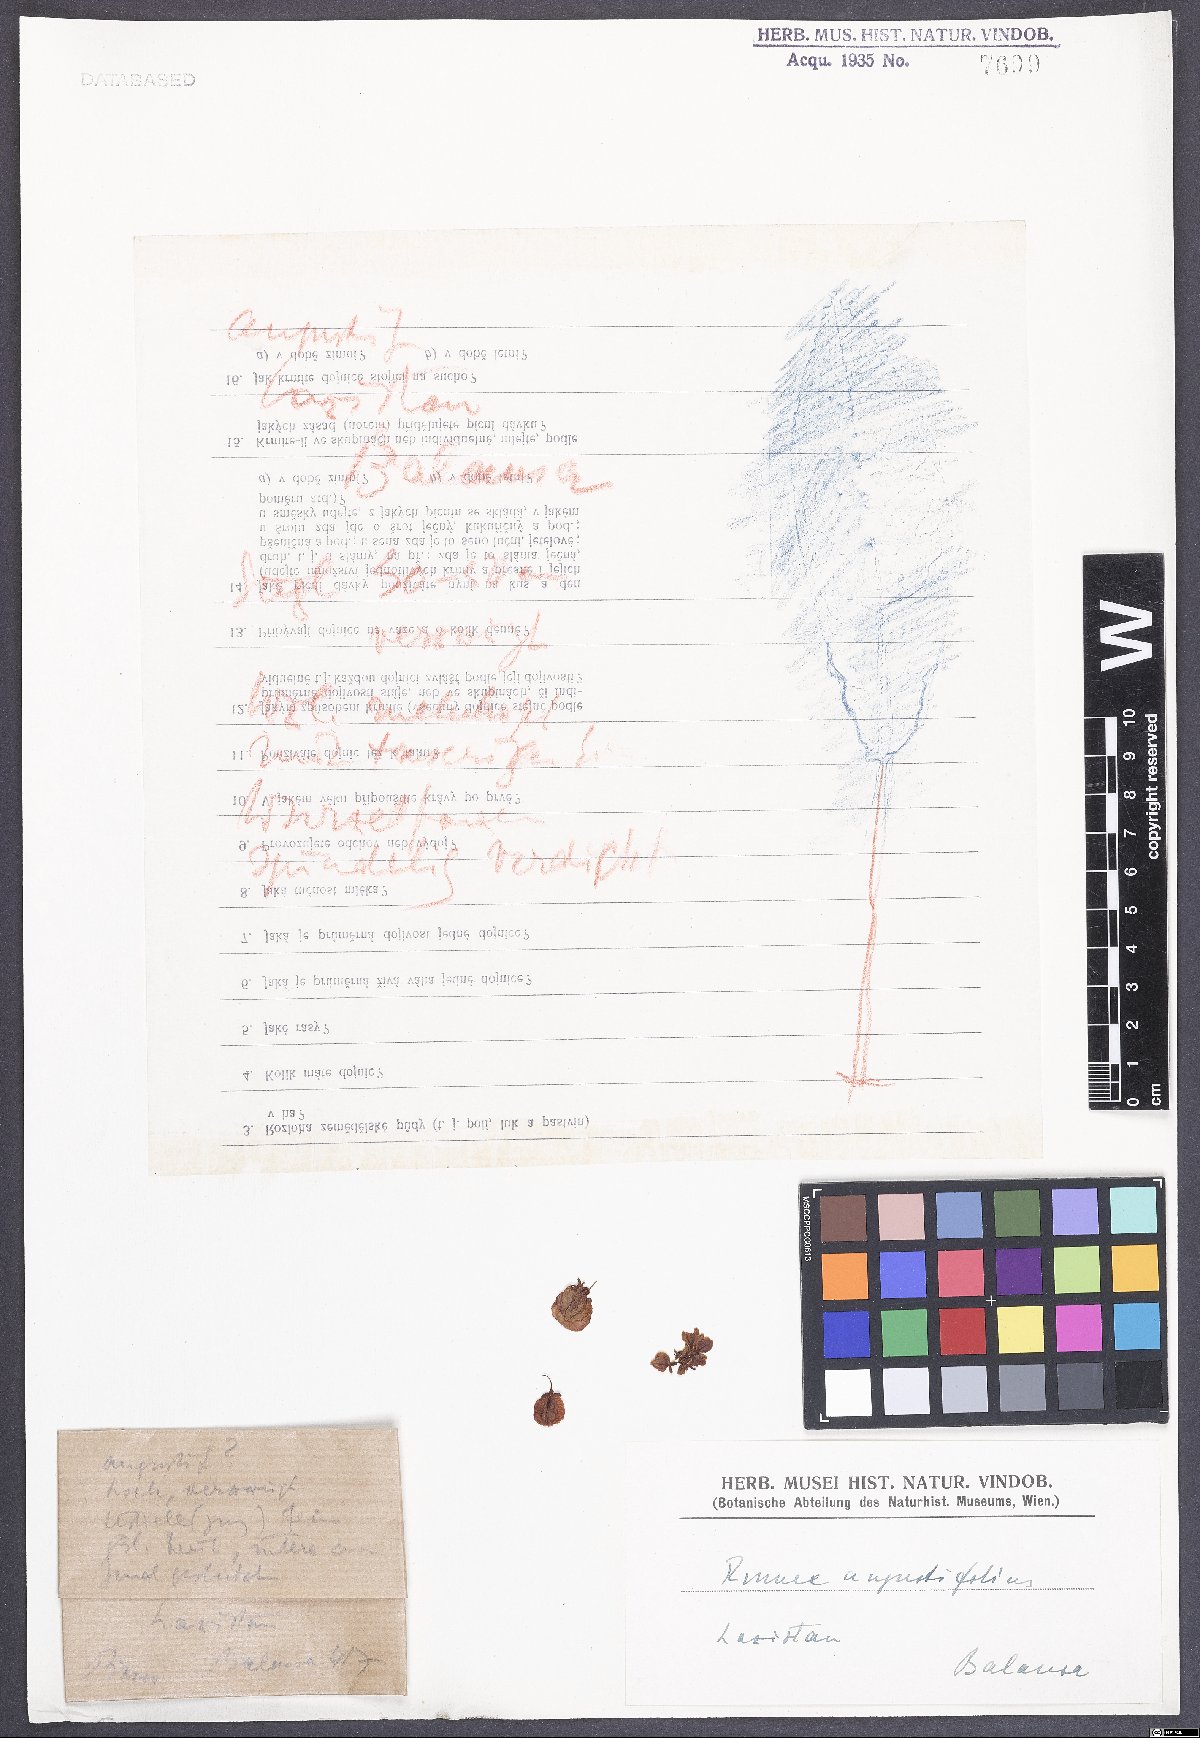 HERB. MUS. HIST. NATUR. VINDOB.
Acqu. 1935 No. 7699
DATABASED
angustif
a) v době zimní? b) v době letní?
16. Jak krmíte dojnice stojící na sucho?
Lazistan
jakých zásad (norem) přidělujete pícní dávku?
15. Krmíte-li ve skupinách neb individuelně, udejte, podle
Balansa
a) v době zimní? b) v době letní?
poměru atd.)?
u směsky udejte, z jakých pícnin se skládá, v jakém
u šrotu zda jde o šrot ječný, kukuřičný a pod.;
pšeničná a pod.; u sena zda je to seno luční, jetelové;
druh, t. j. u slámy, na př.: zda je to sláma ječná,
(udejte množství jednotlivých krmiv a přesně i jejich
14. Jaké pícní dávky používáte nyní na kus a den
13. Přibývají dojnice na váze, a o kolik denně?
verzweigt
viduelně t. j. každou dojnici zvlášť podle její dojivosti?
průměrné dojivosti stáje, neb ve skupinách, či indi-
12. Jakým způsobem krmíte (všechny dojnice stejně podle
11. Používáte dojnic též k tahu?
10. V jakém věku připouštíte krávy po prvé?
Wurzelfasern
9. Provozujete odchov neb výdoj?
spindelig verdickt
8. Jaká tučnost mléka?
7. Jaká je průměrná dojivost jedné dojnice?
6. Jaká je průměrná živá váha jedné dojnice?
5. Jaké rasy?
4. Kolik máte dojnic?
v ha?
3. Rozloha zemědělské půdy (t. j. polí, luk a pastvin)
W
0 1 2 3 4 5 6 7 8 9 10
cm copyright reserved
MSCCPPCC0613
angustif?
hoch, verzweigt
Lazistan
Balansa
HERB. MUSEI HIST. NATUR. VINDOB.
(Botanische Abteilung des Naturhist. Museums, Wien.)
Rumex angustifolius
Lasistan
Balansa